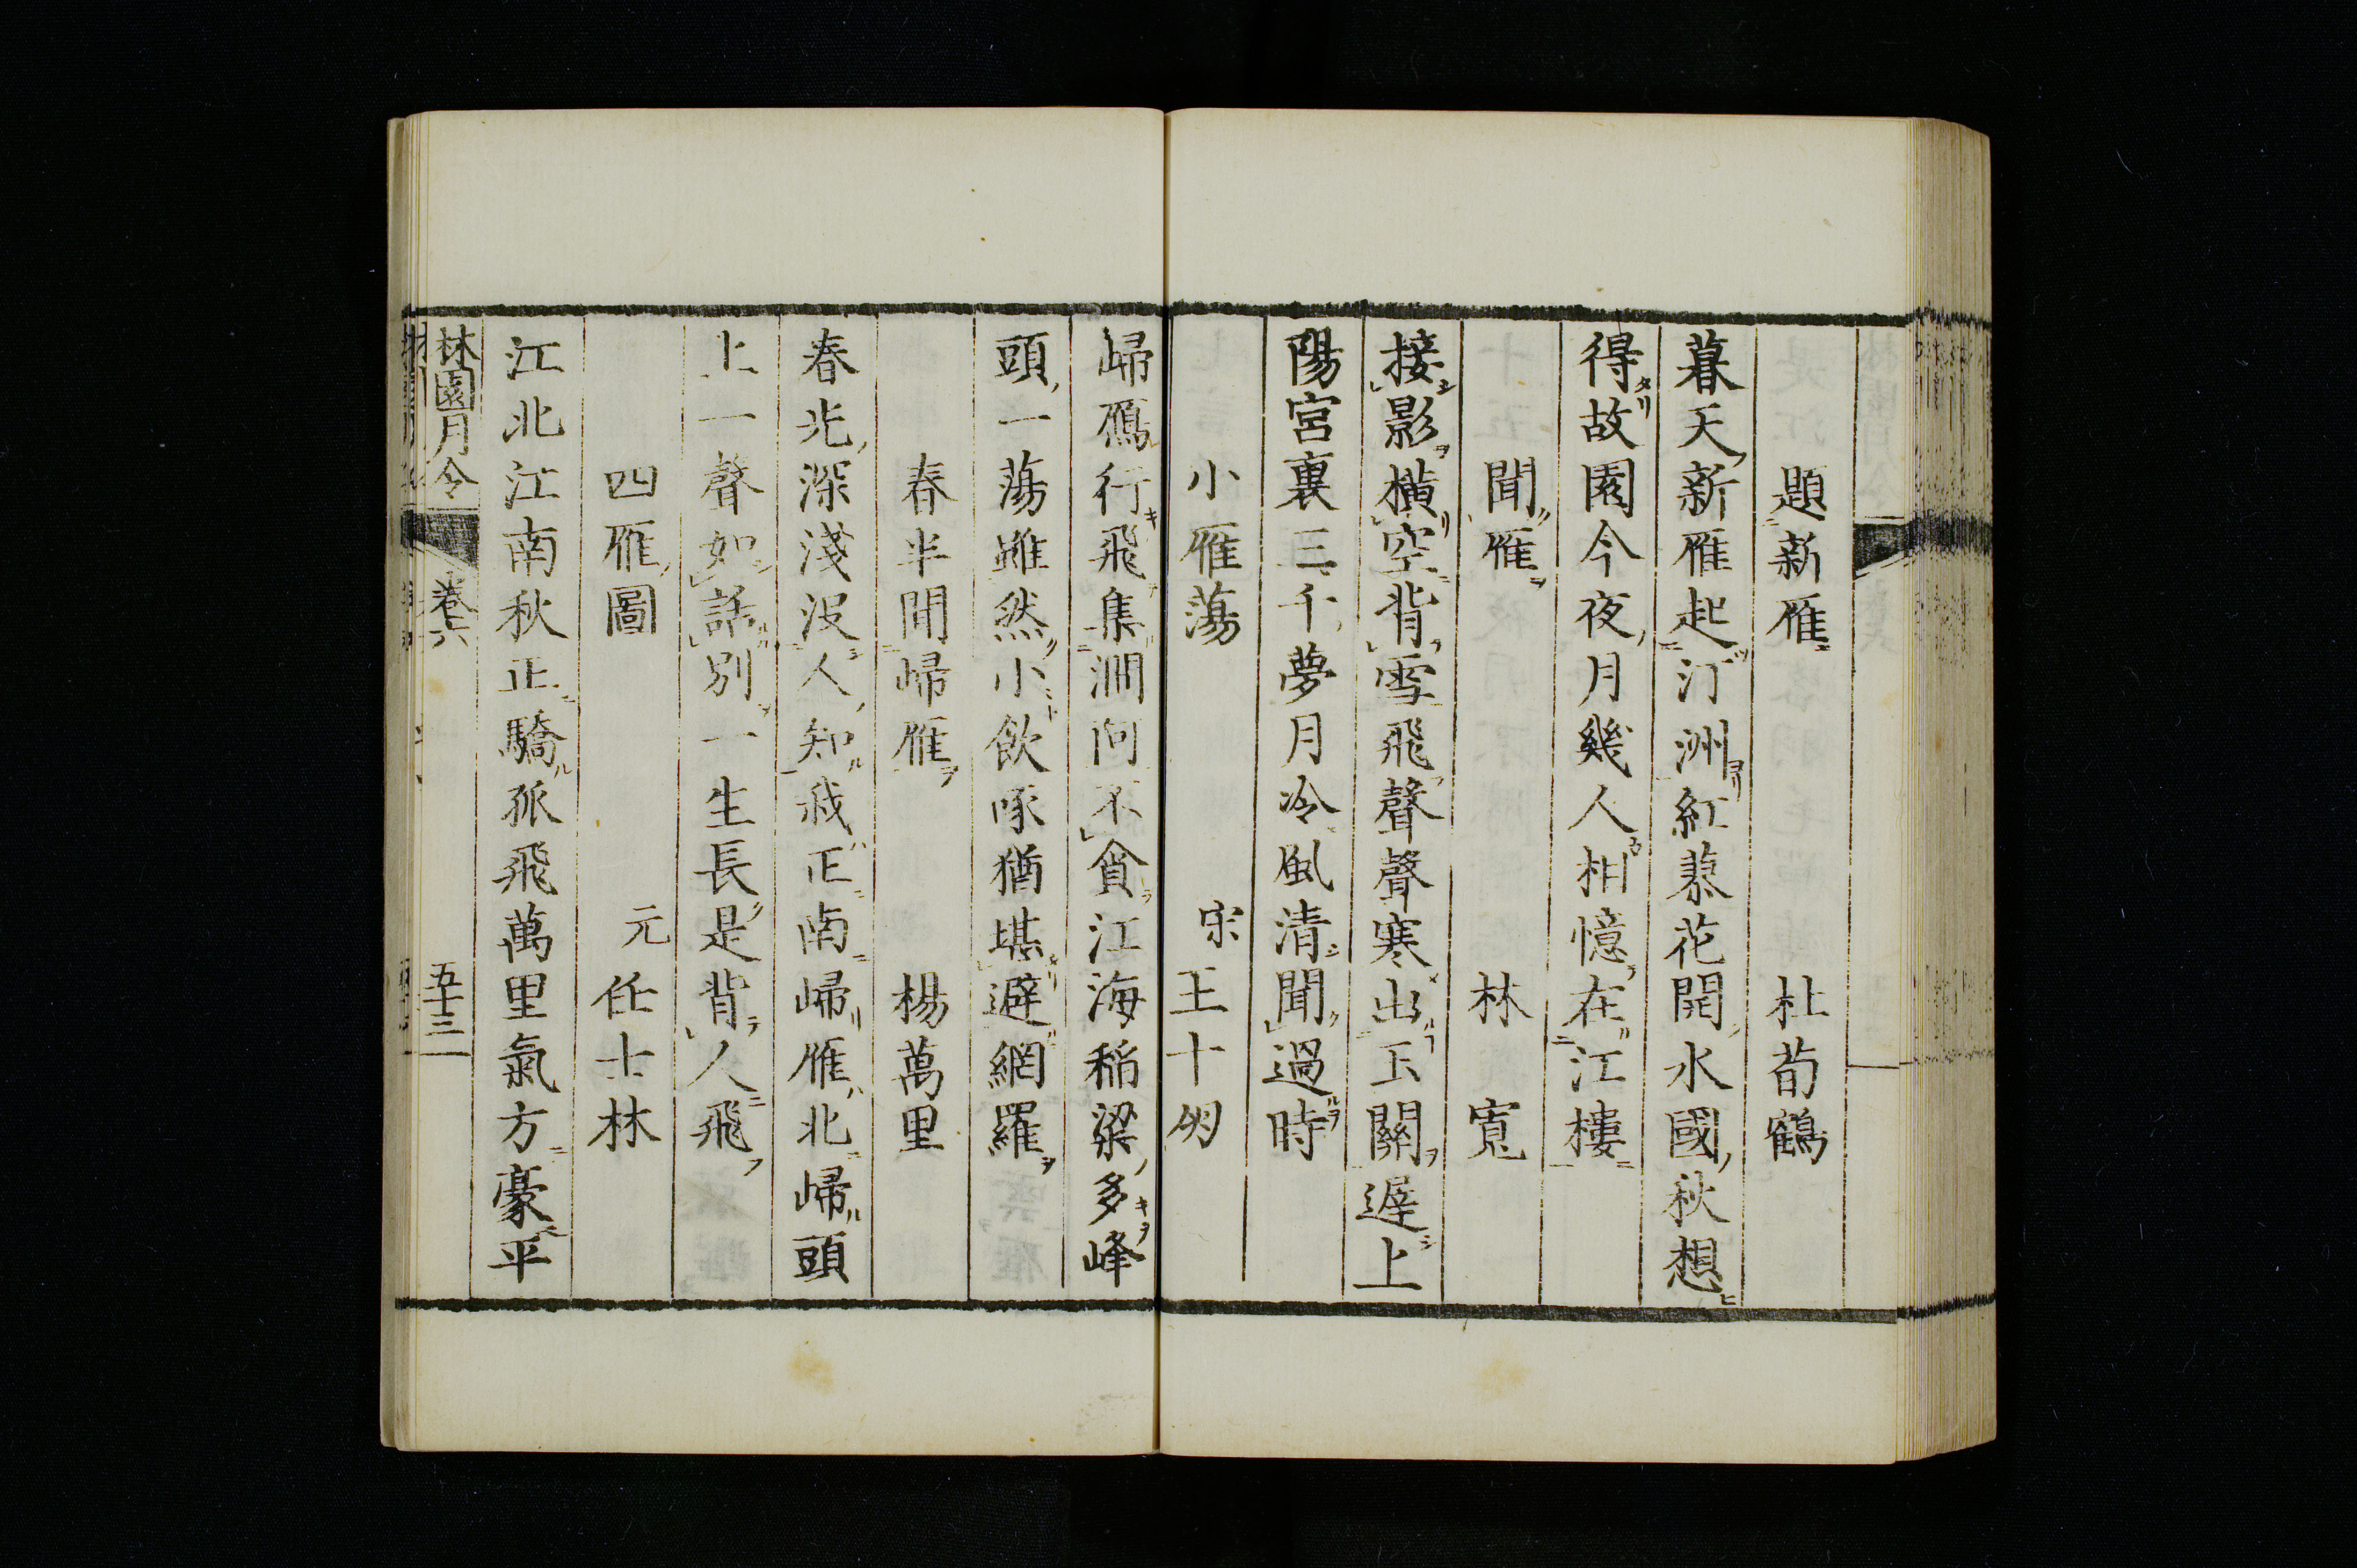 題新雁 杜荀鶴
暮天新雁起汀洲紅蓼花開水國秋想
得故園今夜月幾人相憶在江樓
聞雁 林寬
接影橫空背雪飛聲聲寒出玉關遲上
陽宮裏三千夢月冷風清聞過時
小雁蕩 宋王十朋
歸鴈行飛集澗阿不貪江海稲粱多峰
頭一蕩雖然小飲啄猶堪避網羅
春半聞歸雁 楊萬里
春光深淺没人知我正南歸雁北歸頭
上一聲如話別一生長是背人飛
四雁圖 元任士林
江北江南秋正驕孤飛萬里氣方豪平
林園月令 卷六 五十三